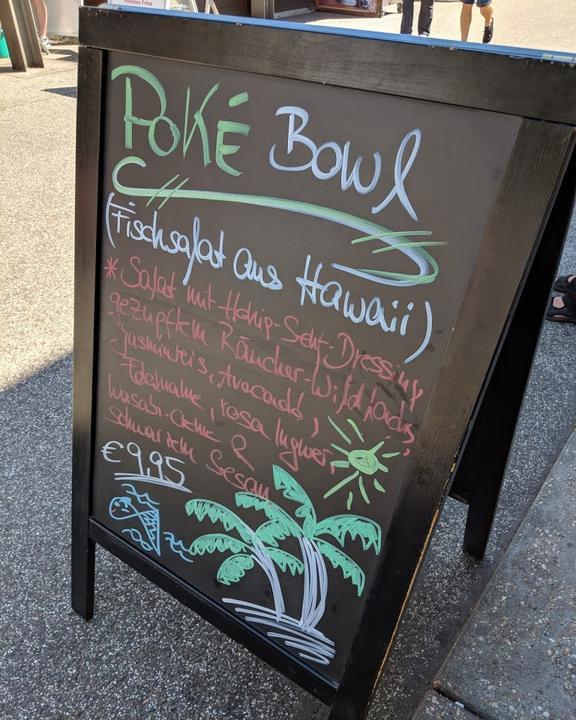 Poké Bowl
(Fischsalat aus Hawaii)
* Salat mit Honig-Senf-Dressing
gezupftem Räucher-Wildlachs,
Jasminreis, Avocado,
Edamame, rosa Ingwer,
Wasabi-Creme &
schwarzem Sesam
€9,95